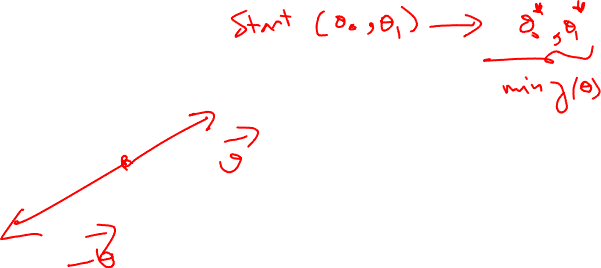 Start (θ₀, θ₁) → θ₀*, θ₁*
min J(θ)